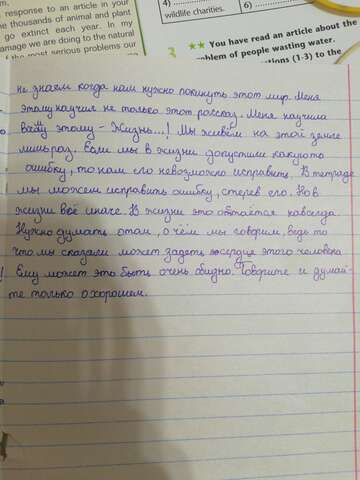 response to an article in your
the thousands of animal and plant
go extinct each year. In my
damage we are doing to the natural
the most serious problems our
4)
wildlife charities.
6)
3 ★★ You have read an article about the
problem of people wasting water.
(1-3) to the
не знаем когда нам нужно покинуть этот мир. Меня
этому научил не только этот рассказ. Меня научила
этому - Жизнь...! Мы живём на этой земле
лишь раз. Если мы в жизни допустим какую то
ошибку, то нам его невозможно исправить. В тетраде
мы можем исправить ошибку, стерев его. Но в
жизни всё иначе. В жизни это обтаётся навсегда.
Нужно думать о том, о чём мы говорим, ведь то
что мы сказали может задеть сердце этого человека
Ему может это быть очень обидно. Говорите и думай-
те только о хорошем.